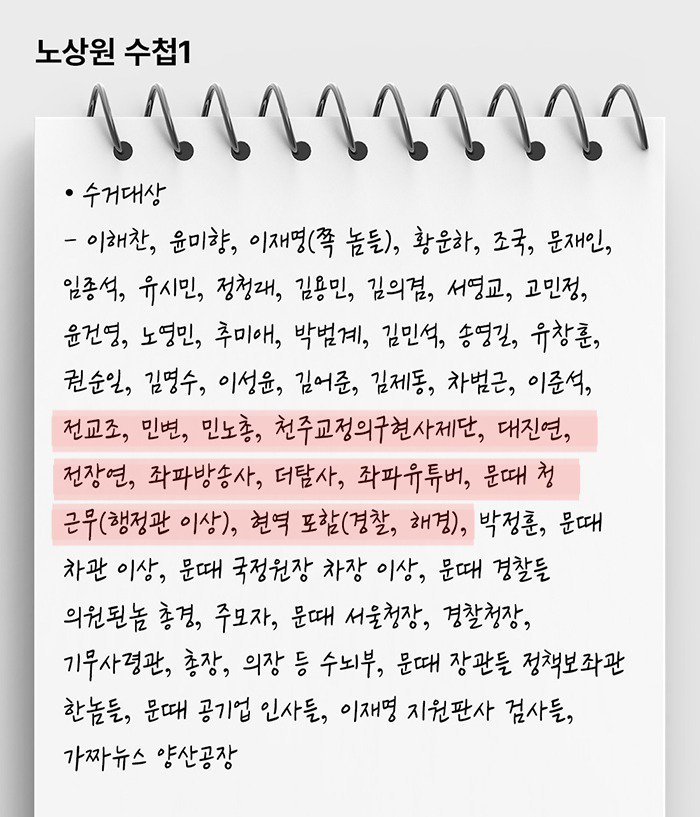 노상원 수첩1
• 수거대상
- 이해찬, 윤미향, 이재명(쪽 놈들), 황운하, 조국, 문재인,
임종석, 유시민, 정청래, 김용민, 김의겸, 서영교, 고민정,
윤건영, 노영민, 추미애, 박범계, 김민석, 송영길, 유창훈,
권순일, 김명수, 이성윤, 김어준, 김제동, 차범근, 이준석,
전교조, 민변, 민노총, 천주교정의구현사제단, 대진연,
전장연, 좌파방송사, 더탐사, 좌파유튜버, 문때 청
근무(행정관 이상), 현역 포함(경찰, 해경), 박정훈, 문때
차관 이상, 문때 국정원장 차장 이상, 문때 경찰들
의원된놈 총경, 주모자, 문때 서울청장, 경찰청장,
기무사령관, 총장, 의장 등 수뇌부, 문때 장관들 정책보좌관
한놈들, 문때 공기업 인사들, 이재명 지원판사 검사들,
가짜뉴스 양산공장